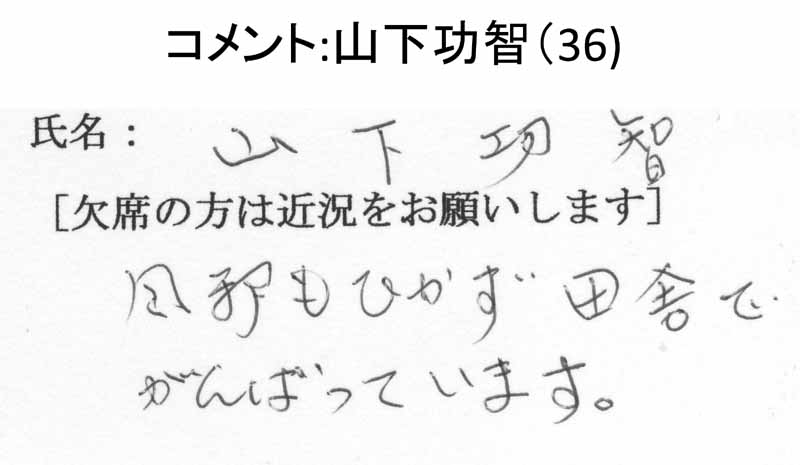 コメント:山下功智(36)
氏名: 山下功智
[欠席の方は近況をお願いします]
風邪もひかず田舎で
がんばっています。